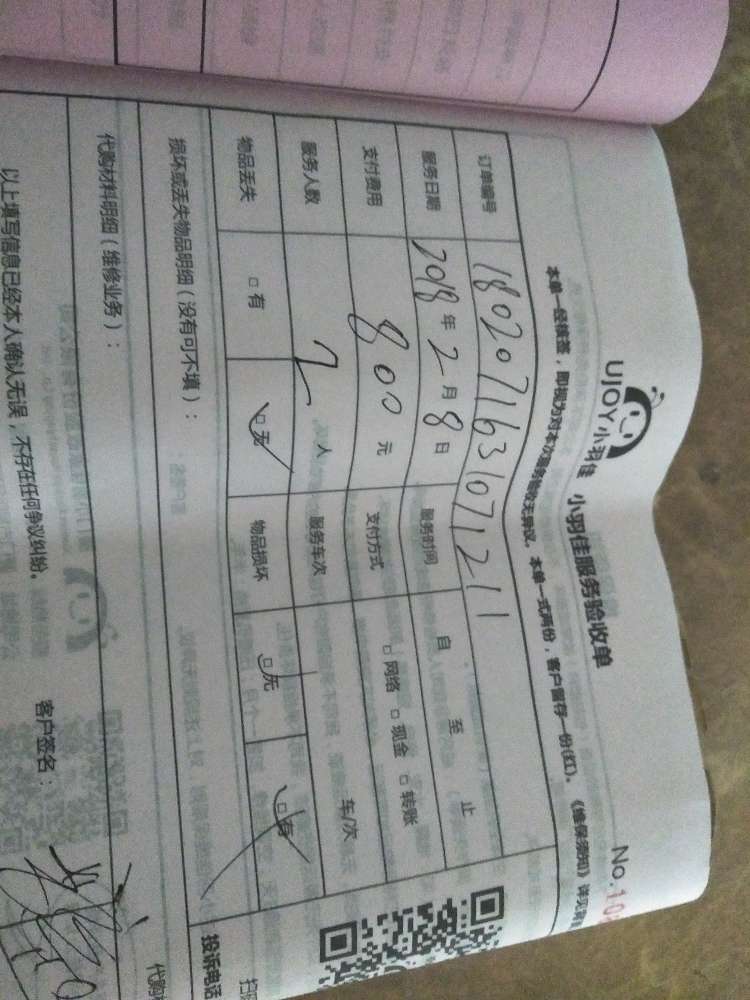 UJOY小羽佳 小羽佳服务验收单 No.10
本单一经核签,即视为对本次服务验收无异议。本单一式两份,客户留存一份(红)。《维保须知》详见
订单编号 180207163107121 1
服务日期 2018年2月8日 服务时间 自 至 止
支付费用 800元 支付方式 □网络 □现金 □转账
服务人数 2人 服务车次 车/次
物品丢失 □有 □无 物品损坏 □无 □有
损坏或丢失物品明细(没有可不填):
投诉电话
代购材料明细(维修业务):
代购
以上填写信息已经本人确认无误,不存在任何争议纠纷。 客户签名: